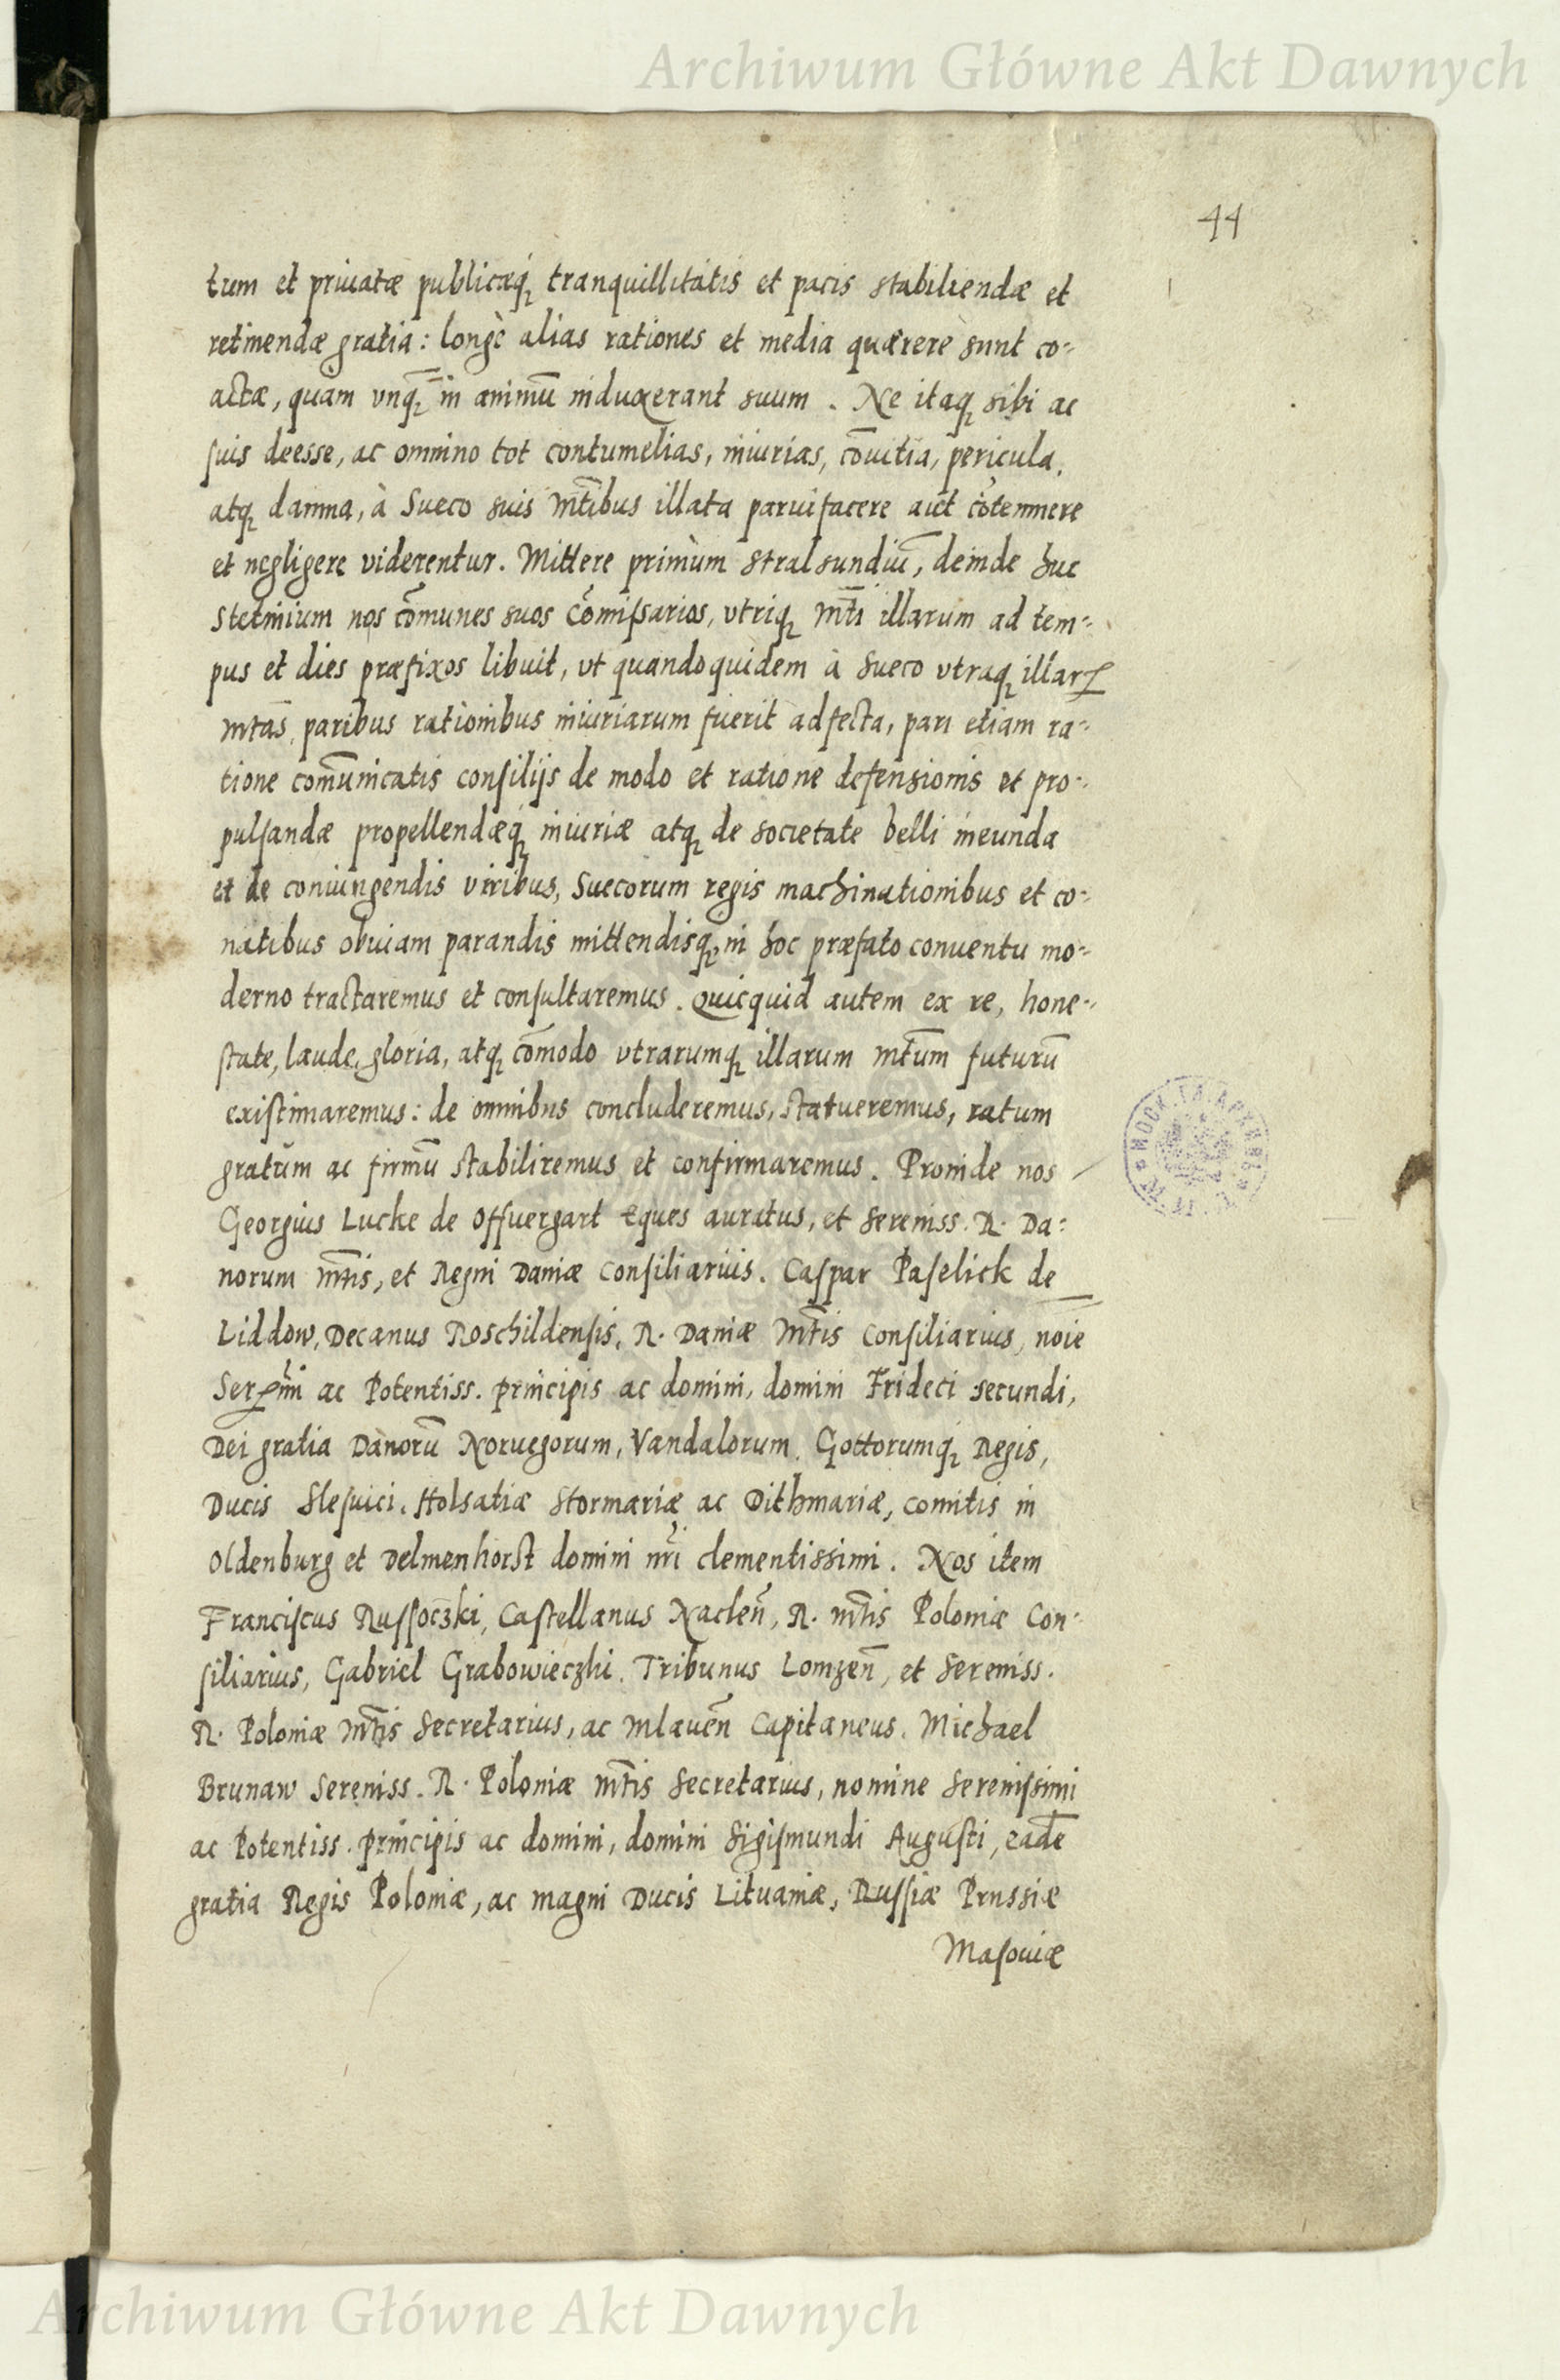 Archiwum Główne Akt Dawnych
44
tum et priuatæ publicæq́ꝫ tranquillitatis et pacis stabiliendæ et
retinendæ gratia: longè alias rationes et media quærere sunt co-
actæ, quàm vnqꝫ̄ in animū induxerant suum. Ne itaqꝫ sibi ac
suis deesse, ac omnino tot contumelias, iniurias, cōuitia, pericula,
atqꝫ damna, à Sueco suis Mt̄ibus illata paruifacere aut cōtemnere
et negligere viderentur. Mittere primùm Stralsundiū, deinde huc
Stetinium nos cōmunes suos Cōmissarios, vtriqꝫ Mt̄i illarum ad tem-
pus et dies præfixos libuit, vt quandoquidem à Sueco vtraqꝫ illarꝝ
Mtās, paribus rationibus iniuriarum fuerit adfecta, pari etiam ra-
tione com̄unicatis consilijs de modo et ratione defensionis et pro-
pulsandæ propellendæq́ꝫ iniuriæ atqꝫ de societate belli ineunda
et de coniungendis viribus, Suecorum regis machinationibus et co-
natibus obuiam parandis mittendisqꝫ in hoc præfato conuentu mo-
derno tractaremus et consultaremus. Quicquid autem ex re, hone-
state, laude, gloria, atqꝫ cōmodo vtrarumqꝫ illarum Mt̄um futurū
existimaremus: de omnibus concluderemus, statueremus, ratum
gratum ac firmū stabiliremus et confirmaremus. Proinde nos
Georgius Lucke de Offuergart Eques auratus, et Sereniss. R. Da-
norum Mt̄is, et Regni Daniæ Consiliarius. Caspar Paselick de
Liddow, Decanus Roschildensis, R. Daniæ Mt̄is Consiliarius, noie
Serꝑmi ac Potentiss. principis ac domini, domini Frideci secundi,
Dei gratia Danorū Noruegorum, Vandalorum, Gottorumq́ꝫ Regis,
Ducis Slesuici, Holsatiæ Stormariæ ac Dithmariæ, Comitis in
Oldenburg et Delmenhorst domini nr̄i clementissimi. Nos item
Franciscus Russoczki, Castellanus Naclen̄, R. Mt̄is Poloniæ Con-
siliarius, Gabriel Grabowieczhi, Tribunus Lomzen̄, et Sereniss.
R. Poloniæ Mt̄is Secretarius, ac Mlauen̄ Capitaneus. Michael
Brunaw Sereniss. R. Poloniæ Mt̄is Secretarius, nomine Serenissimi
ac Potentiss. principis ac domini, domini Sigismundi Augusti, eadē
gratia Regis Poloniæ, ac magni Ducis Lituaniæ, Russiæ Prussiæ
Masouiæ
Archiwum Główne Akt Dawnych